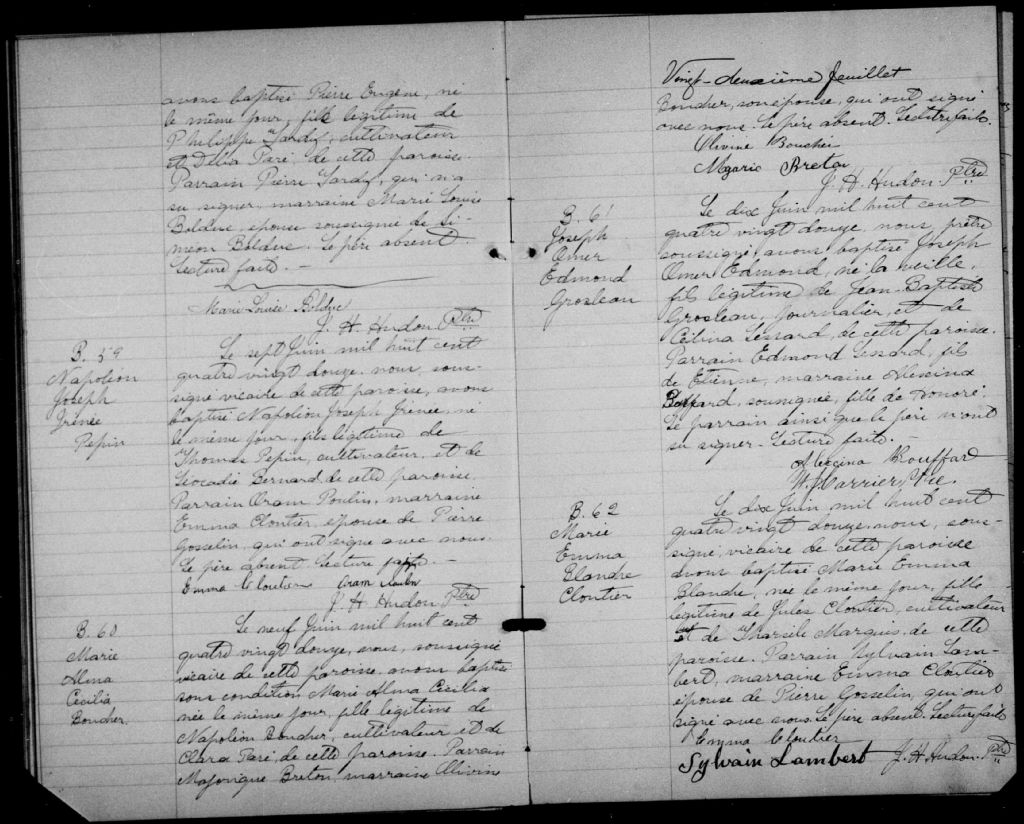 avons baptisé Pierre Eugène, né
le même jour, fils légitime de
Philippe Tardif, cultivateur
et Délia Paré, de cette paroisse.
Parrain Pierre Tardif, qui n'a
su signer, marraine Marie Louise
Bolduc, épouse soussignée de Si-
méon Bolduc. Le père absent.
Lecture faite. —
Marie Louise Bolduc
J. H. Hudon Ptre
B. 59
Napoléon
Joseph
Irénée
Pepin
Le sept Juin mil huit cent
quatre vingt douze, nous, sous-
signé vicaire de cette paroisse, avons
baptisé Napoléon Joseph Irénée, né
le même jour, fils légitime de
Thomas Pepin, cultivateur, et de
Léocadie Bernard, de cette paroisse.
Parrain Oram Poulin, marraine
Emma Cloutier, épouse de Pierre
Gosselin, qui ont signé avec nous.
Le père absent. Lecture faite. —
Emma Cloutier Oram Poulin
J. H. Hudon Ptre
B. 60
Marie
Alma
Cécilia
Boucher.
Le neuf Juin mil huit cent
quatre vingt douze, nous, soussigné
vicaire de cette paroisse, avons baptisé
sous condition Marie Alma Cécilia
née le même jour, fille légitime de
Napoléon Boucher, cultivateur et de
Clara Paré, de cette paroisse. Parrain
Majorique Breton, marraine Olivine
Vingt-deuxième feuillet
Boucher, son épouse, qui ont signé
avec nous. Le père absent. Lecture faite.
Olivine Boucher
Magoric Breton
J. H. Hudon. Ptre
B. 61
Joseph
Omer
Edmond
Grosleau
Le dix Juin mil huit cent
quatre vingt douze, nous, prêtre
soussigné, avons baptisé Joseph
Omer Edmond, né la veille,
fils légitime de Jean-Baptiste
Grosleau, journalier, et de
Célina Lessard, de cette paroisse.
Parrain Edmond Lessard, fils
de Etienne, marraine Alexina
Bouffard, soussignée, fille de Honoré.
Le parrain ainsi que le père n'ont
su signer. Lecture faite. —
Alexina Bouffard
Carrier, Vic.
B. 62
Marie
Emma
Blandre
Cloutier
Le dix Juin mil huit cent
quatre vingt douze, nous, sous-
signé, vicaire de cette paroisse
avons baptisé Marie Emma
Blandre, née le même jour, fille
légitime de Jules Cloutier, cultivateur
et de Tharsile Marquis, de cette
paroisse. Parrain Sylvain Lam-
bert, marraine Emma Cloutier
épouse de Pierre Gosselin, qui ont
signé avec nous. Le père absent. Lecture faite
Emma Cloutier
Sylvain Lambert J. H. Hudon. Ptre